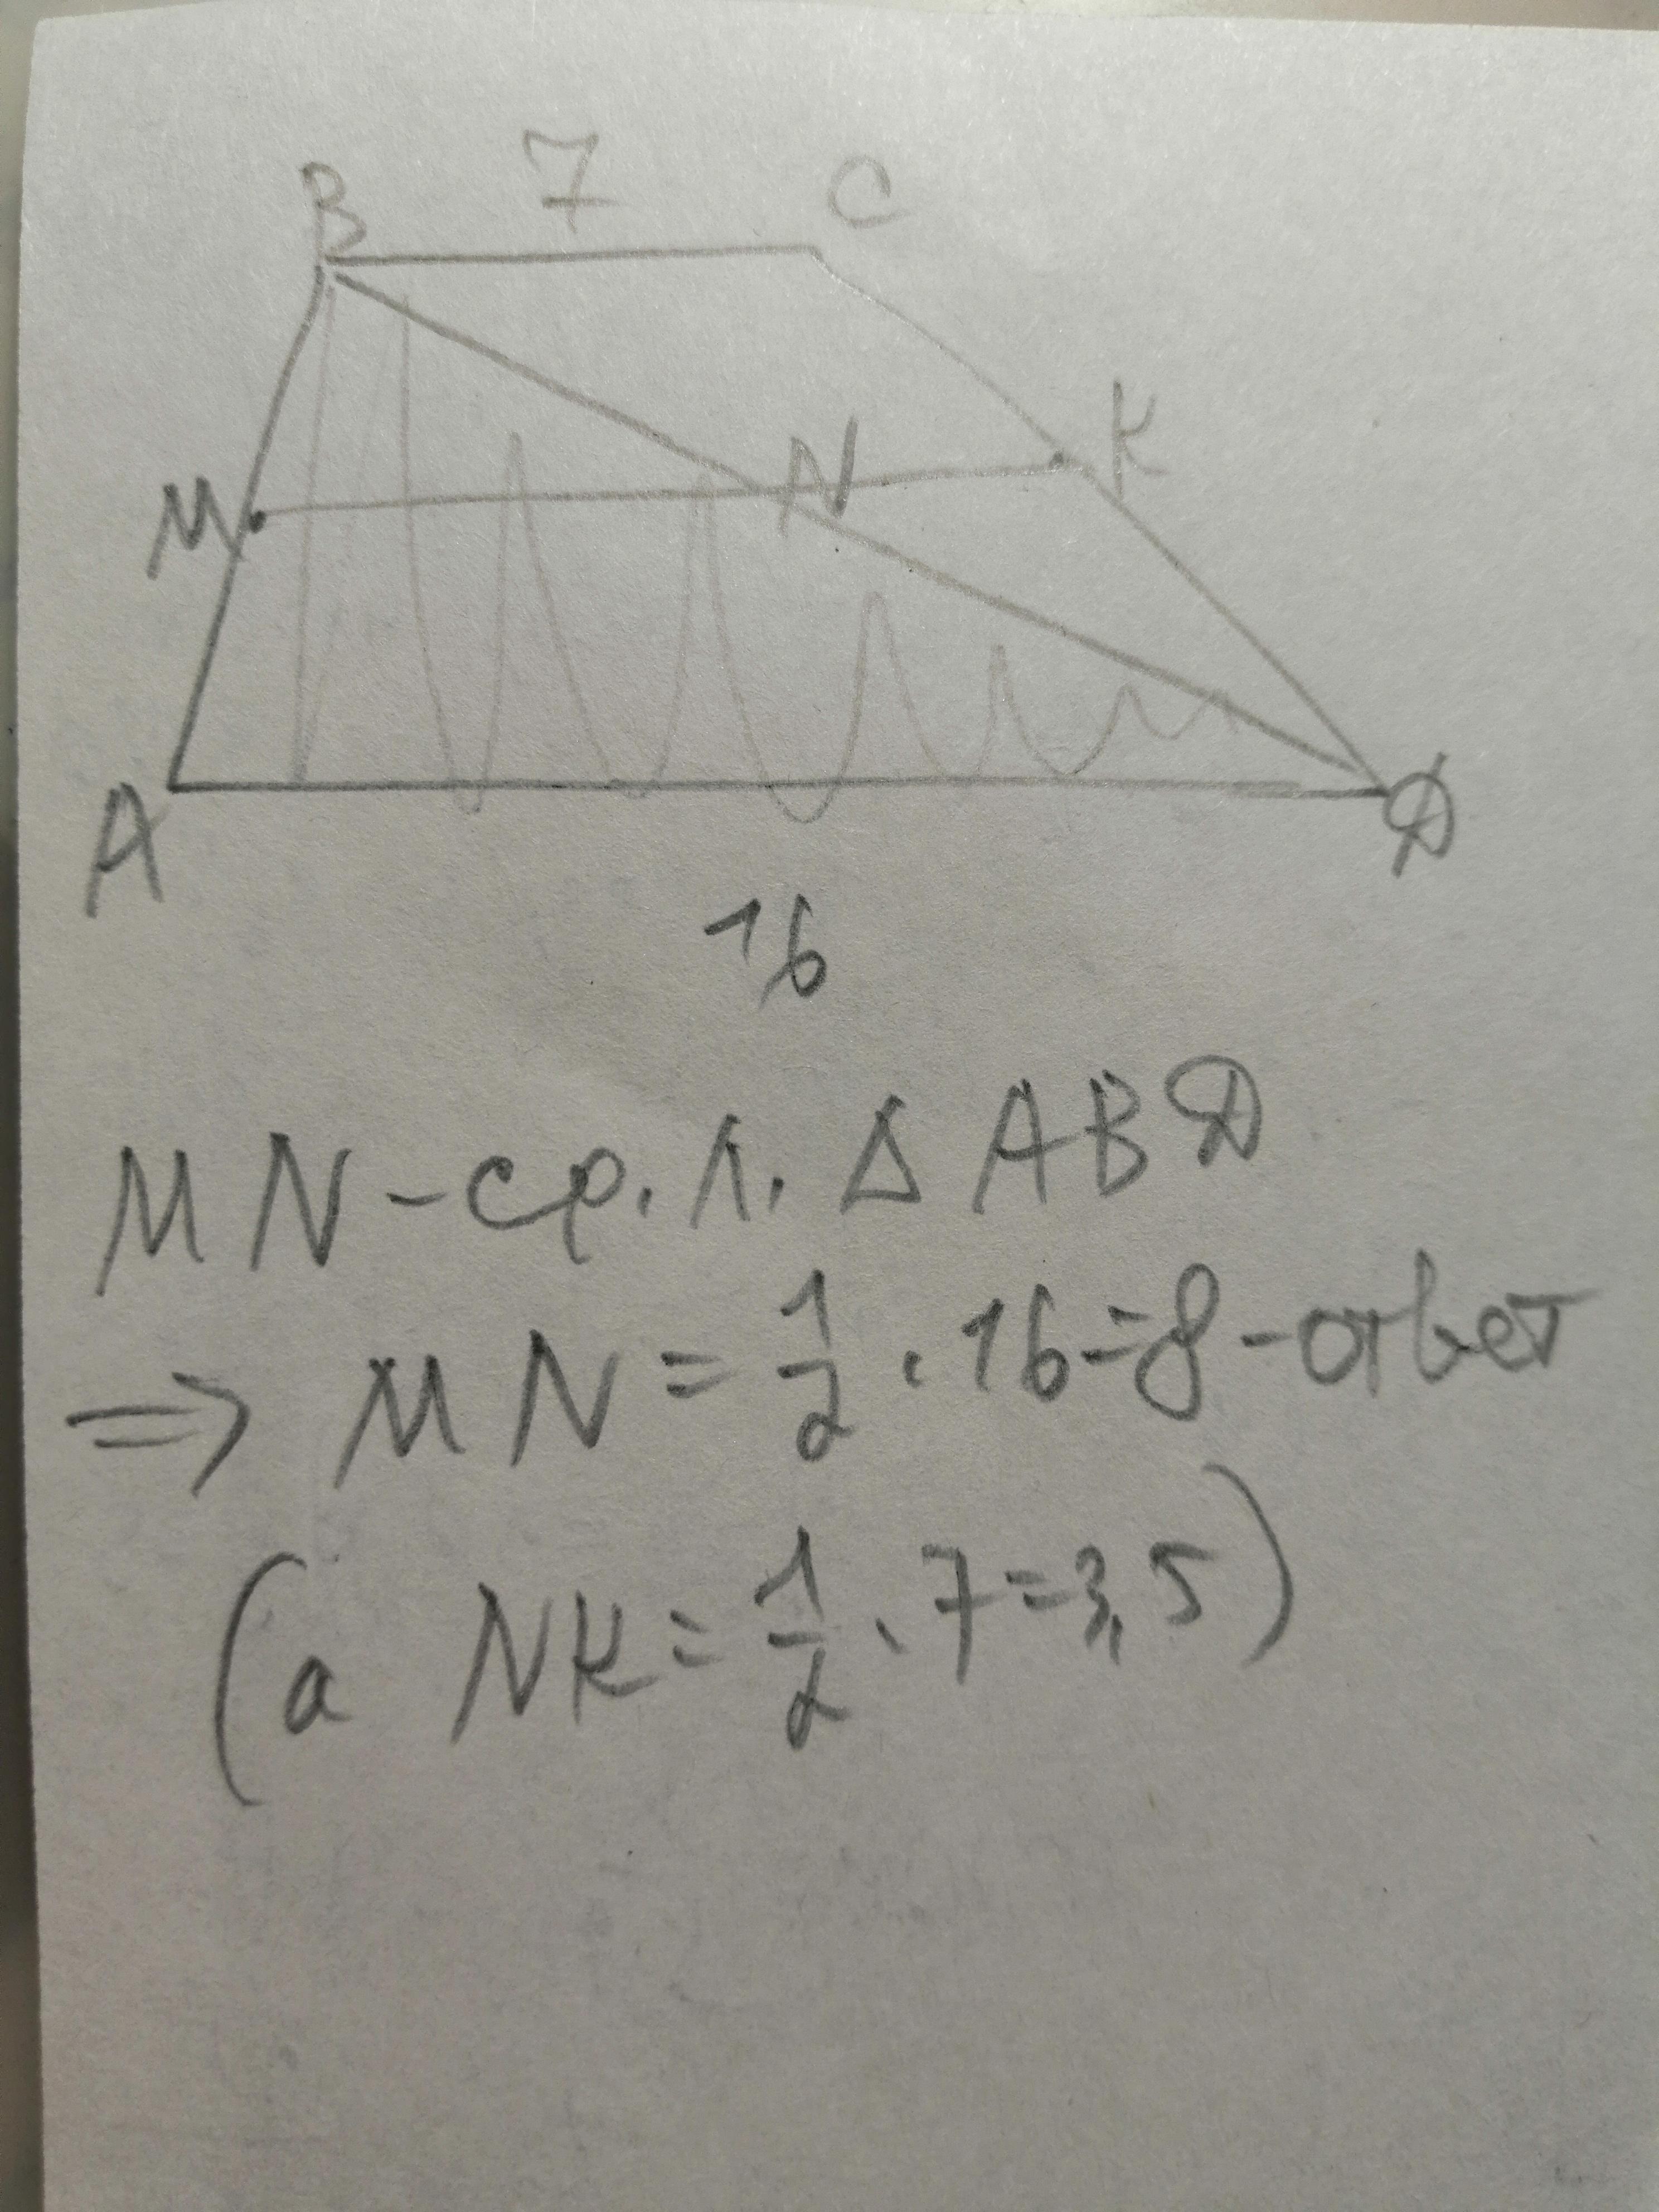 7
B C
M N K
A D
16
MN - ср. л. Δ ABD
=> MN = 1/2 · 16 = 8 - ответ
(а NK = 1/2 · 7 = 3,5)